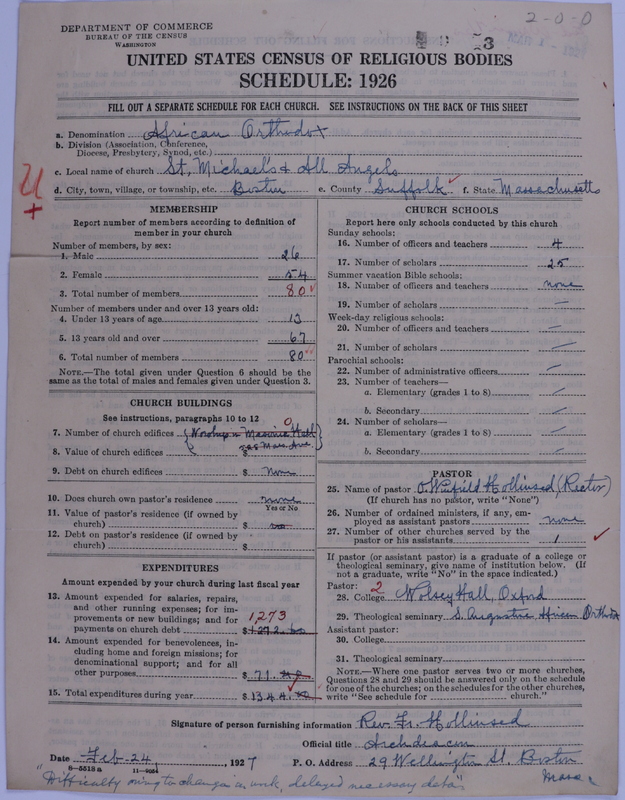 2-0-0
DEPARTMENT OF COMMERCE
BUREAU OF THE CENSUS
WASHINGTON
UNITED STATES CENSUS OF RELIGIOUS BODIES
SCHEDULE: 1926
FILL OUT A SEPARATE SCHEDULE FOR EACH CHURCH. SEE INSTRUCTIONS ON THE BACK OF THIS SHEET
a. Denomination African Orthodox
b. Division (Association, Conference, Diocese, Presbytery, Synod, etc.)
c. Local name of church St. Michael's & All Angels
d. City, town, village, or township, etc. Boston e. County Suffolk f. State Massachusetts
MEMBERSHIP
Report number of members according to definition of
member in your church
Number of members, by sex:
1. Male 26
2. Female 54
3. Total number of members 80
Number of members under and over 13 years old:
4. Under 13 years of age 13
5. 13 years old and over 67
6. Total number of members 80
NOTE.—The total given under Question 6 should be
same as the total of males and females given under Question 3.
CHURCH BUILDINGS
See instructions, paragraphs 10 to 12
7. Number of church edifices 0 Worship in Masonic Hall
8. Value of church edifices $ Mass. Ave.
9. Debt on church edifices $ None
10. Does church own pastor's residence none
Yes or No
11. Value of pastor's residence (if owned by
church) $ no
12. Debt on pastor's residence (if owned by
church) $
EXPENDITURES
Amount expended by your church during last fiscal year
13. Amount expended for salaries, repairs,
and other running expenses; for im-
provements or new buildings; and for 1,273
payments on church debt $
14. Amount expended for benevolences, in-
cluding home and foreign missions; for
denominational support; and for all
other purposes $ 71.
15. Total expenditures during year $ 1344.
CHURCH SCHOOLS
Report here only schools conducted by this church
Sunday schools:
16. Number of officers and teachers 4
17. Number of scholars 25
Summer vacation Bible schools:
18. Number of officers and teachers none
19. Number of scholars —
Week-day religious schools:
20. Number of officers and teachers —
21. Number of scholars —
Parochial schools:
22. Number of administrative officers —
23. Number of teachers—
a. Elementary (grades 1 to 8) —
b. Secondary —
24. Number of scholars—
a. Elementary (grades 1 to 8) —
b. Secondary —
PASTOR
25. Name of pastor O. Winfield Hollinsed (Rector)
(If church has no pastor, write "None")
26. Number of ordained ministers, if any, em-
ployed as assistant pastors none
27. Number of other churches served by the
pastor or his assistants 1
If pastor (or assistant pastor) is a graduate of a college or
theological seminary, give name of institution below. (If
not a graduate, write "No" in the space indicated.)
Pastor: 2
28. College Wolsey Hall, Oxford
29. Theological seminary S. Augustine African Orthodox
Assistant pastor:
30. College
31. Theological seminary
NOTE.—Where one pastor serves two or more churches,
Questions 28 and 29 should be answered only on the schedule
for one of the churches; on the schedules for the other churches,
write "See schedule for church."
Signature of person furnishing information Rev. Fr. Hollinsed
Official title Archdeacon
Date Feb-24, 1927 P. O. Address 29 Wellington St. Boston
8—5518a 11—9054 Mass.
"Difficulty owing to change in work, delayed necessary data"